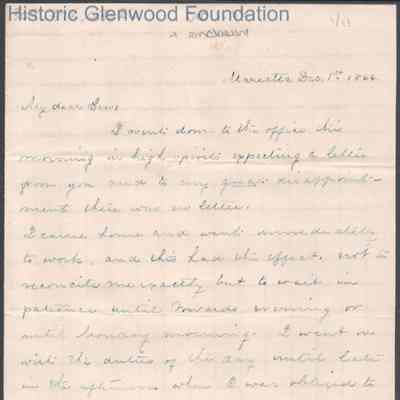 Historic Glenwood Foundation
1/11
Dec. 1st 1866
My dear
I went down to the office this
morning in high spirits expecting a letter
from you and to my great disappoint-
ment there was no letter.
I came home and went immediately
to work, and this had the effect, not to
reconcile me exactly but to wait in
patience until towards evening or
until Monday morning. I went on
with the duties of the day until late
in the afternoon when I was obliged to